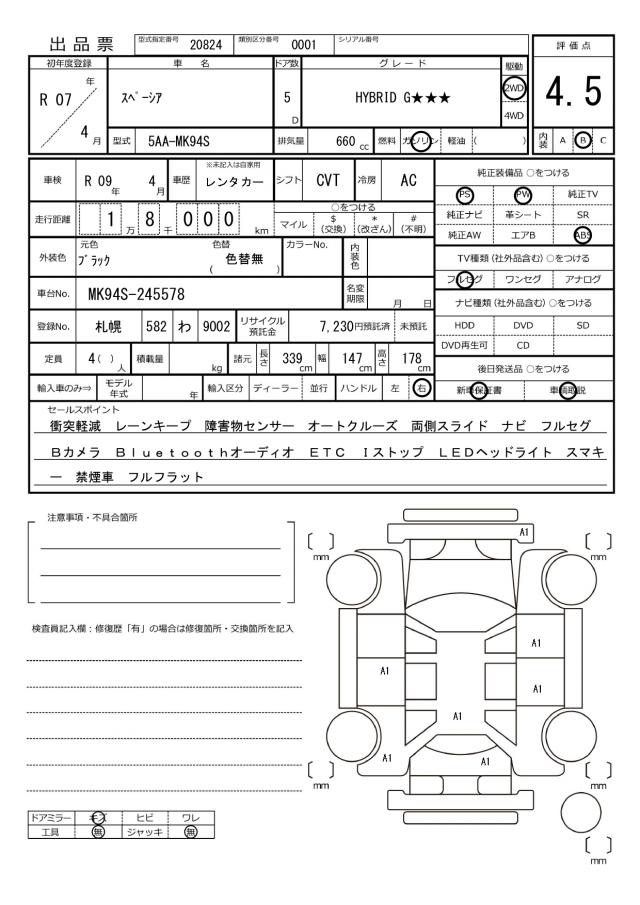 出品票 型式指定番号 20824 類別区分番号 0001 シリアル番号
評価点
初年度登録 車名 ドア数 グレード 駆動
R 07 年 4 月 スペーシア 5 D HYBRID G★★★ 2WD 4WD
4.5
型式 5AA-MK94S 排気量 660 cc 燃料 ガソリン 軽油 ( ) 内装 A B C
車検 R 09 年 4 月 車歴 ※未記入は自家用 レンタカー シフト CVT 冷房 AC
純正装備品 ○をつける
PS PW 純正TV
走行距離 1 万 8 千 0 0 0 km ○をつける
マイル $(交換) *(改ざん) #(不明)
純正ナビ 革シート SR
純正AW エアB ABS
外装色 元色 ブラック 色替 ( 色替無 ) カラーNo. 内装色
TV種類(社外品含む)○をつける
フルセグ ワンセグ アナログ
車台No. MK94S-245578 名変期限 月 日
ナビ種類(社外品含む)○をつける
登録No. 札幌 582 わ 9002 リサイクル預託金 7,230円預託済 未預託
HDD DVD SD
DVD再生可 CD
定員 4( )人 積載量 kg 諸元 長さ 339 cm 幅 147 cm 高さ 178 cm
後日発送品 ○をつける
輸入車のみ⇒ モデル年式 年 輸入区分 ディーラー 並行 ハンドル 左 右
新車保証書 車輌取説
セールスポイント
衝突軽減 レーンキープ 障害物センサー オートクルーズ 両側スライド ナビ フルセグ
Bカメラ Bluetoothオーディオ ETC Iストップ LEDヘッドライト スマキ
ー 禁煙車 フルフラット
注意事項・不具合箇所
検査員記入欄：修復歴「有」の場合は修復箇所・交換箇所を記入
A1
mm
mm
A1
A1
A1
A1
A1
A1
mm
mm
mm
ドアミラー キズ ヒビ ワレ
工具 無 ジャッキ 無